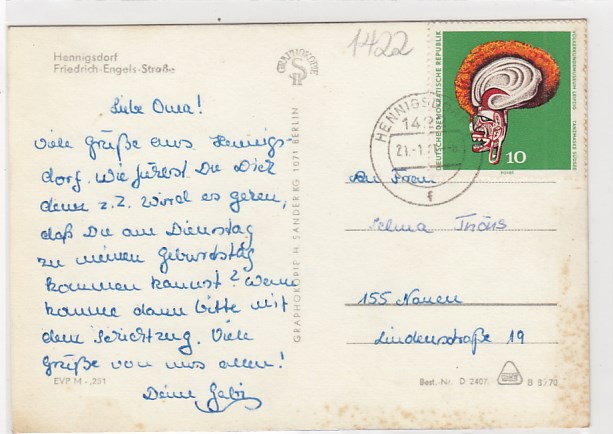 Hennigsdorf
Friedrich-Engels-Straße
Liebe Oma!
Viele Grüße aus Hennigs-
dorf. Wie fühlst Du Dich
denn z.Z. Wird es gehen,
daß Du am Dienstag
zu meinen Geburtstag
kommen kannst? Wenn
komme dann bitte mit
dem Schichtzug. Viele
Grüße von uns allen!
Deine Gabi
EVP M -,231
GRAPHOKOPIE H. SANDER KG 1071 BERLIN
GRAPHOKOPIE
1422
DEUTSCHE DEMOKRATISCHE REPUBLIK
VÖLKERKUNDEMUSEUM LEIPZIG
10
HENNIGSDORF
142
21.-1.
f
An Frau
Selma
155 Nauen
Lindenstraße 19
Best.-Nr. D 2407
B 9/70